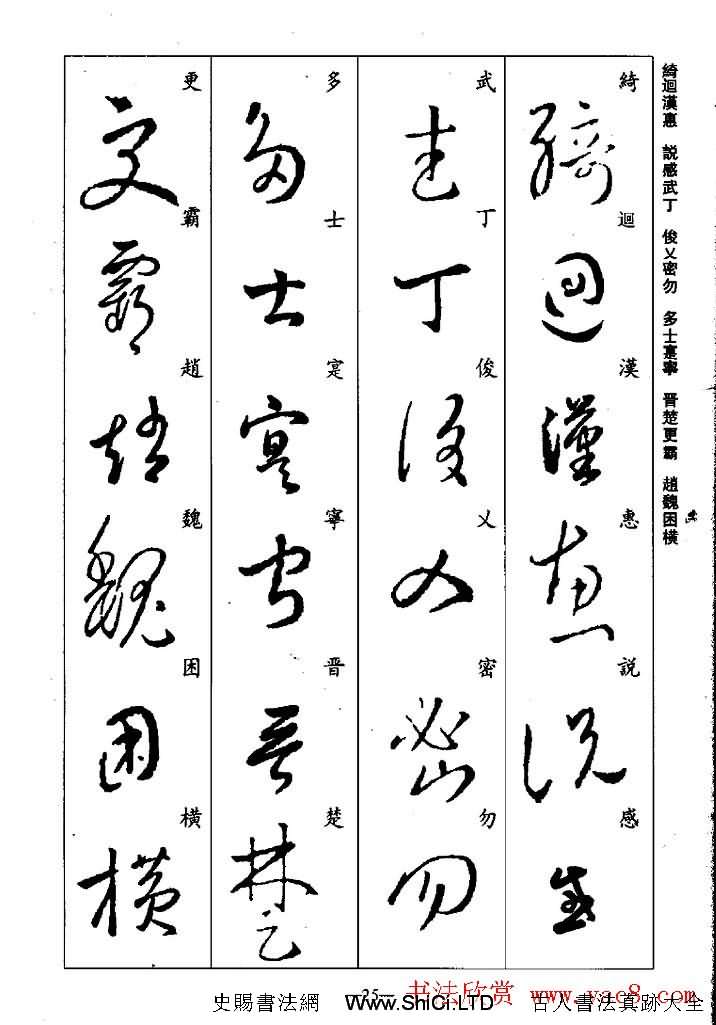 綺迴漢惠 説感武丁 俊乂密勿 多士寔寧 晋楚更霸 趙魏困橫
綺迴漢惠説感
武丁俊乂密勿
多士寔寧晋楚
更霸趙魏困橫
25
书法欣赏 www.yac8.com
史賜書法網 WWW.ShiCi.LTD 古人書法真跡大全